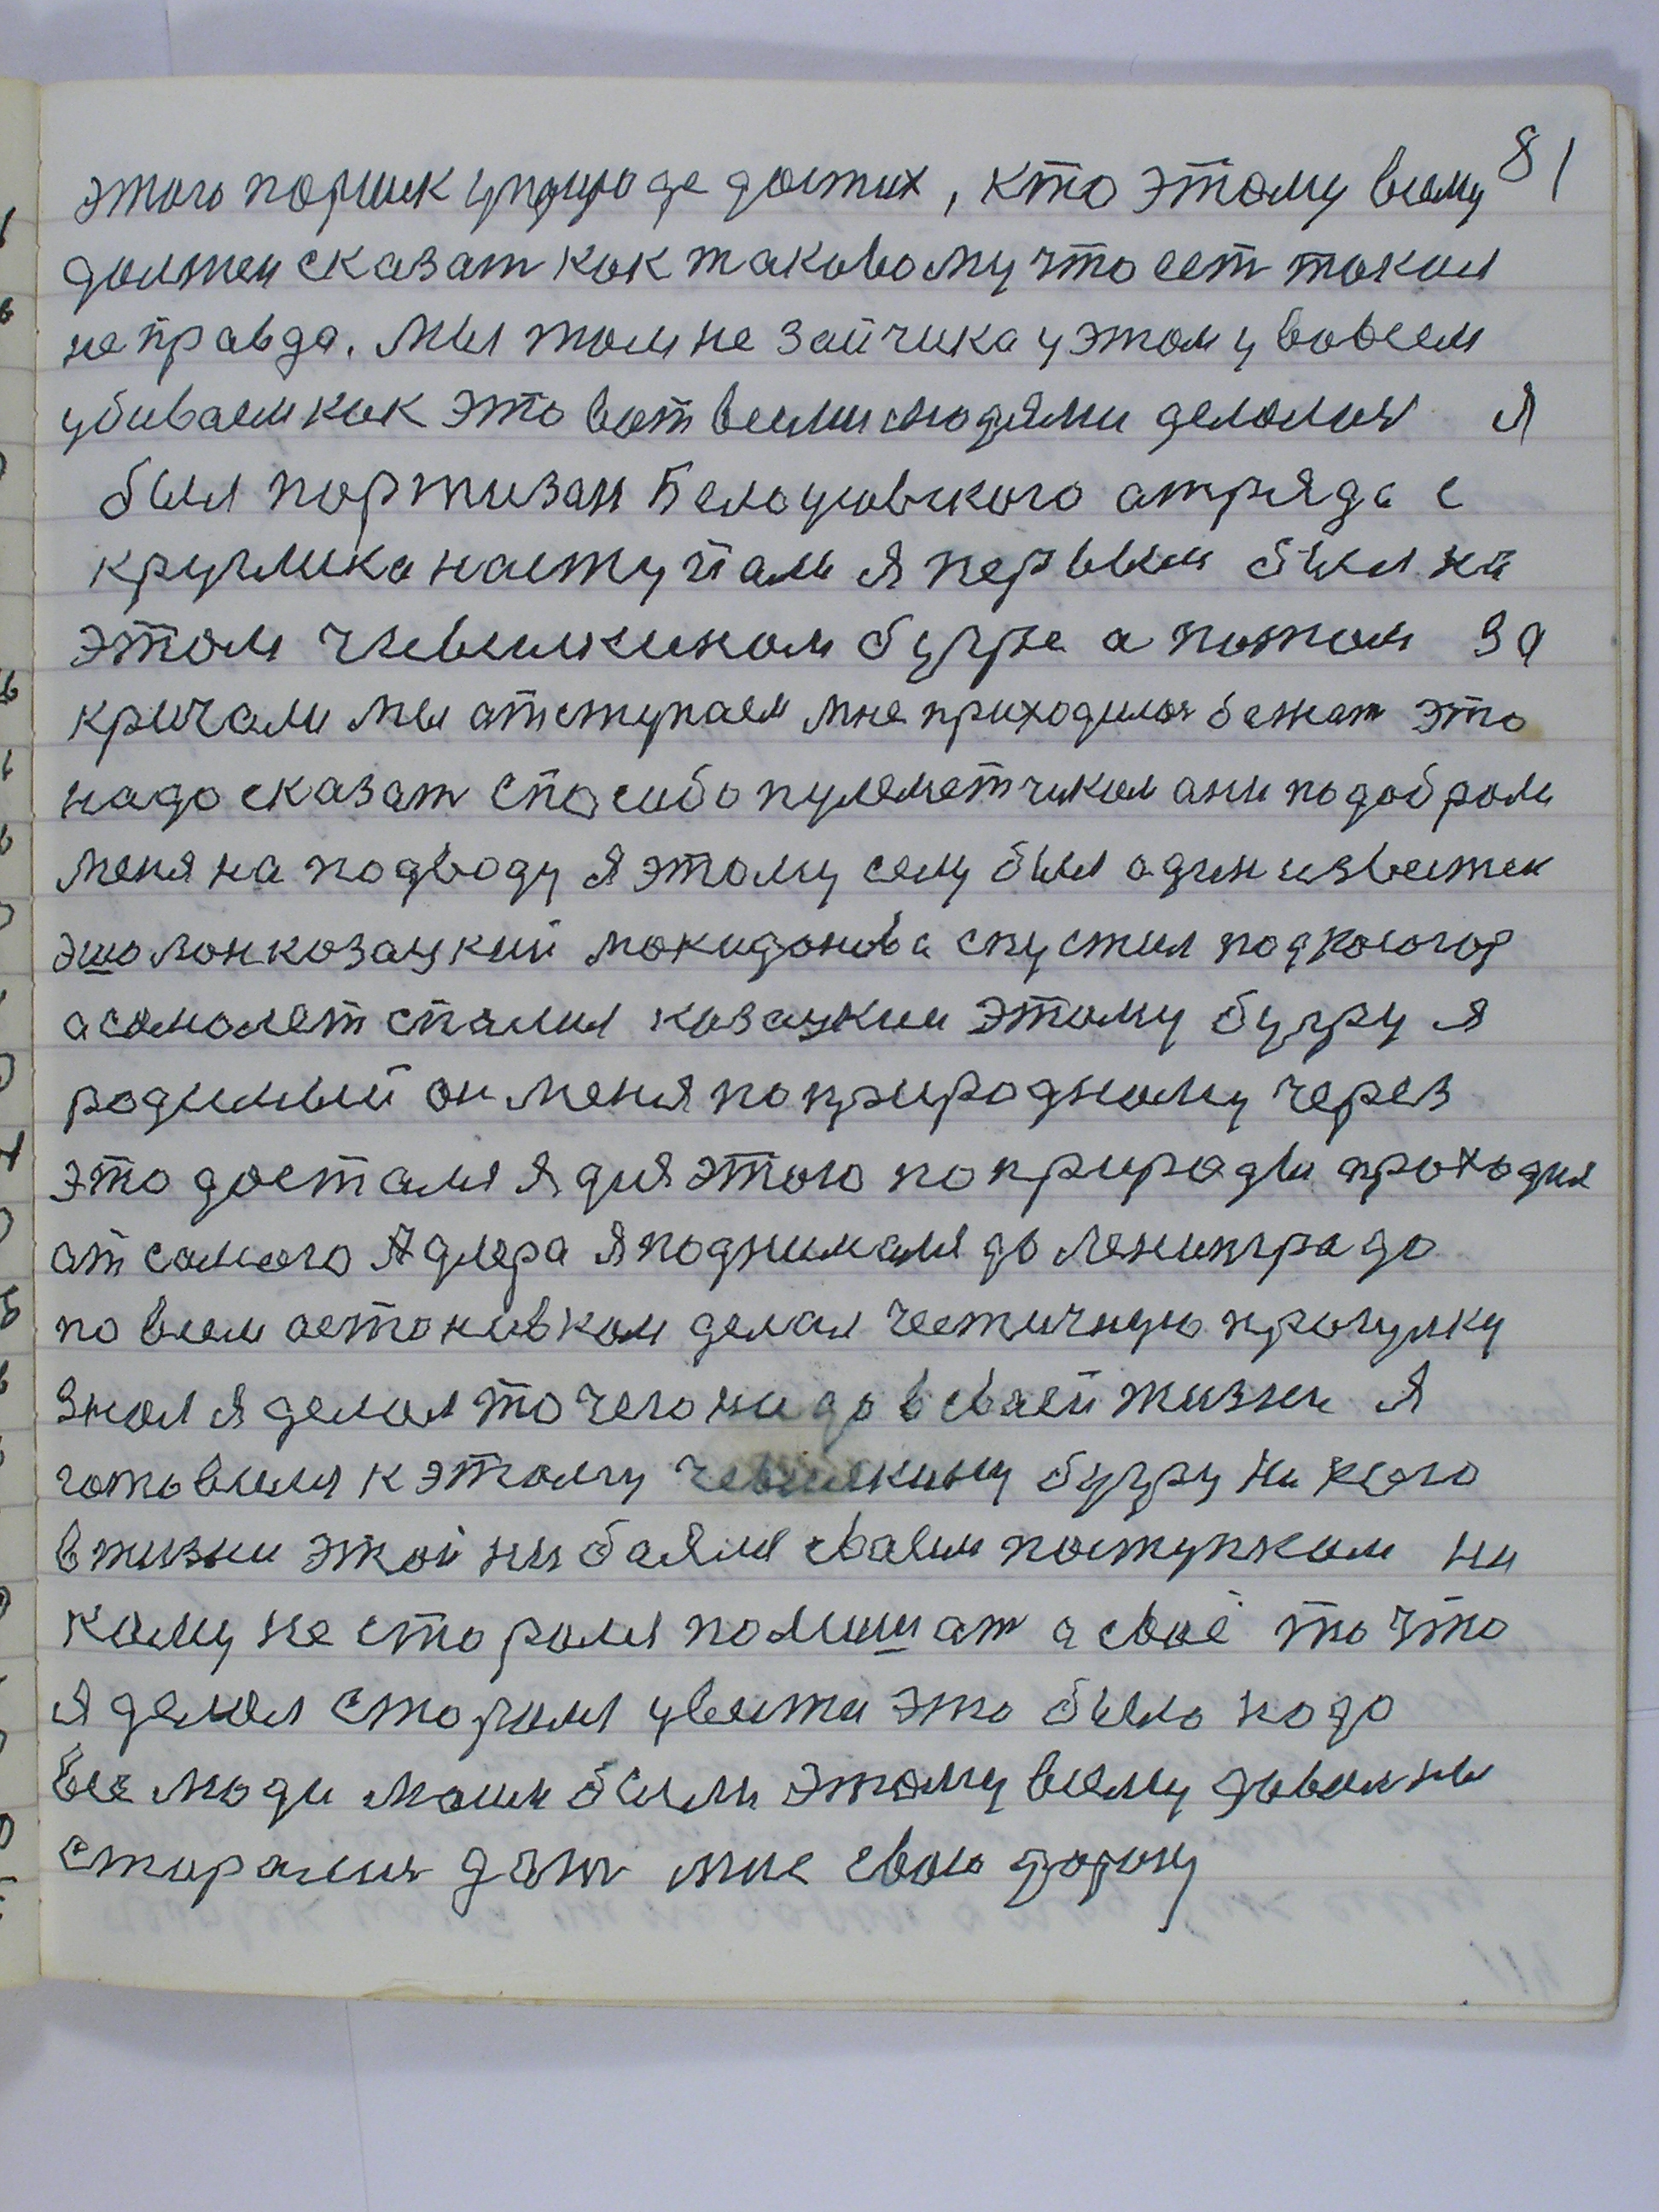 81
этого поршик упрыроде достих, кто этому всему
должен сказат как таковому что ест такая
не правда. Мы там не зайчика у этом у вовсем
убиваем как это вот всеми людями делалися я
был портизан Белоусовского атряда с
круглика наступали я первым был на
этом чивилкином бугре а потом за
кричали мы атступаем мне приходился бежат это
надо сказат спасибо пулеметчикам ани подобрали
меня на подводу я этому селу был адин известен
эшолон козацкий мокидонова спустил подкосогор
а самолет спалил козацкии этому бугру я
родимый он меня поприродному через
это достался я для этого поприроды проходил
ат самого Адлера я поднимался до Ленинграда
по всем астоновкам делал чистичную прогулку
знал я делал то чего надо в сваей жизни я
готовился к этому чевилкину бугру ни кого
в жизни этой ни баялся сваем поступкам ни
кому не сторался помишат а сваё то что
я делал сторался увести это было надо
Все люди маим были этому всему довольны
старалися дат мне сваю дорогу